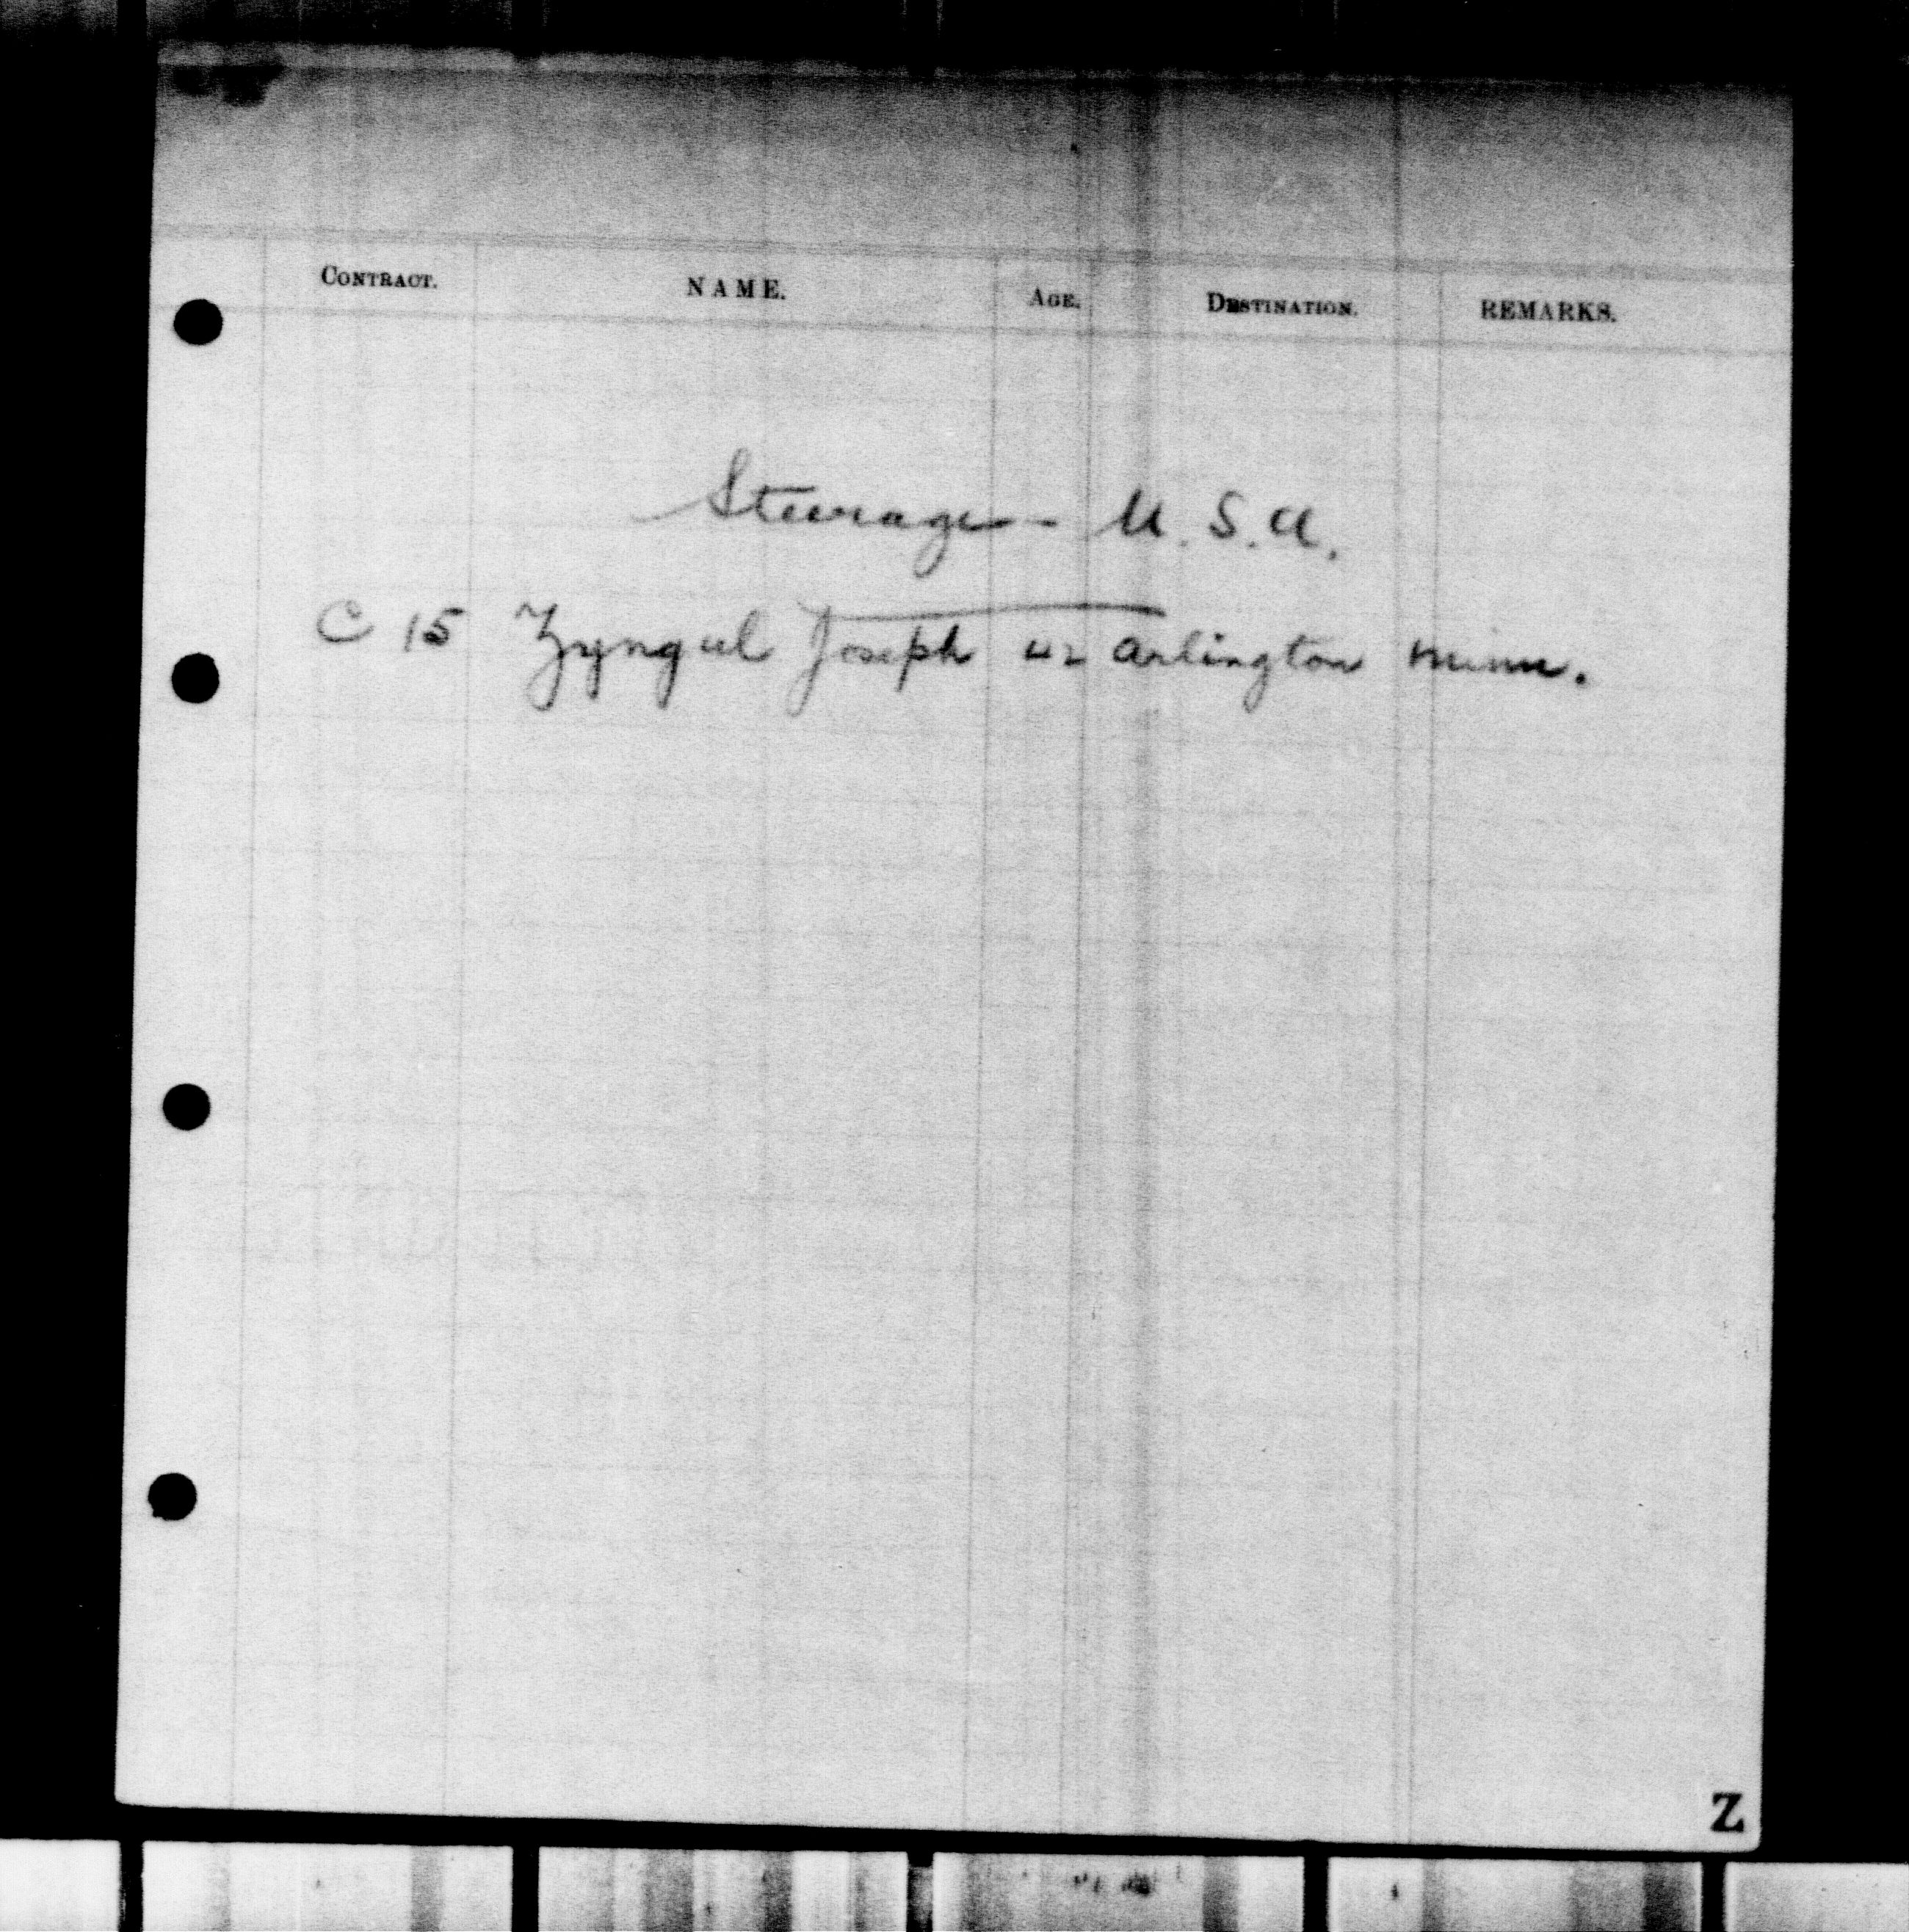 CONTRACT. NAME. AGE. DESTINATION. REMARKS.
Steerage - U.S.A.
C 15 Zyngul Joseph 42 Arlington Minn.
Z